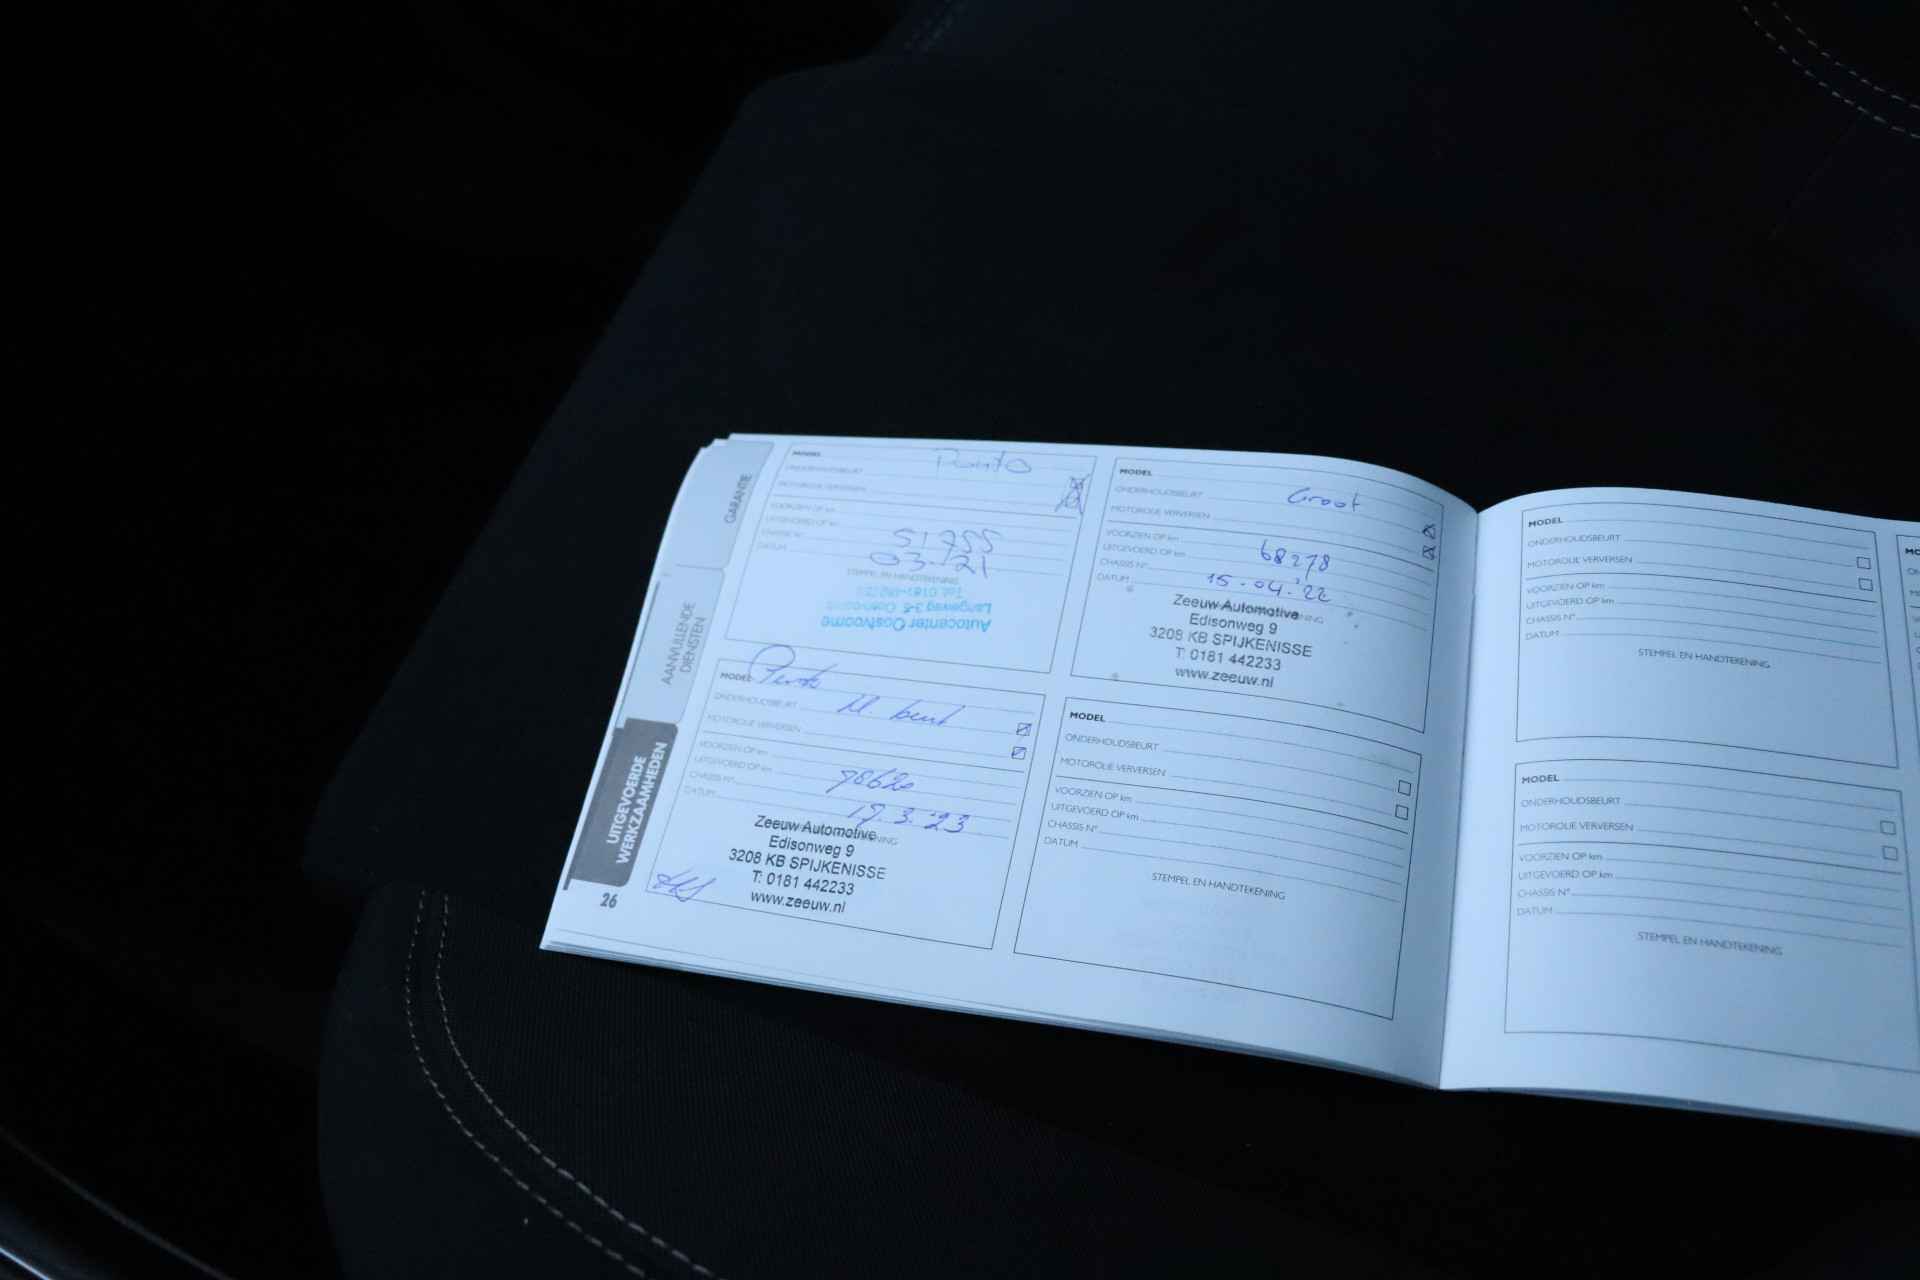 GARANTIE
AANVULLENDE
DIENSTEN
UITGEVOERDE
WERKZAAMHEDEN
26
MODEL
Punto
ONDERHOUDSBEURT
MOTOROLIE VERVERSEN
VOORZIEN OP km
UITGEVOERD OP km
CHASSIS N°
51755
DATUM
03-'21
STEMPEL EN HANDTEKENING
Autocenter Oostvoorne
Langeweg 3-5 Oostvoorne
MODEL
ONDERHOUDSBEURT
Groot
MOTOROLIE VERVERSEN
VOORZIEN OP km
UITGEVOERD OP km
68278
CHASSIS N°
DATUM
15-04-'22
Zeeuw Automotive
Edisonweg 9
3208 KB SPIJKENISSE
T: 0181 442233
www.zeeuw.nl
MODEL
Punto
ONDERHOUDSBEURT
kl. beurt
MOTOROLIE VERVERSEN
VOORZIEN OP km
UITGEVOERD OP km
78620
CHASSIS N°
DATUM
17.3.'23
Zeeuw Automotive
Edisonweg 9
3208 KB SPIJKENISSE
T: 0181 442233
www.zeeuw.nl
MODEL
ONDERHOUDSBEURT
MOTOROLIE VERVERSEN
VOORZIEN OP km
UITGEVOERD OP km
CHASSIS N°
DATUM
STEMPEL EN HANDTEKENING
MODEL
ONDERHOUDSBEURT
MOTOROLIE VERVERSEN
VOORZIEN OP km
UITGEVOERD OP km
CHASSIS N°
DATUM
STEMPEL EN HANDTEKENING
MODEL
ONDERHOUDSBEURT
MOTOROLIE VERVERSEN
VOORZIEN OP km
UITGEVOERD OP km
CHASSIS N°
DATUM
STEMPEL EN HANDTEKENING